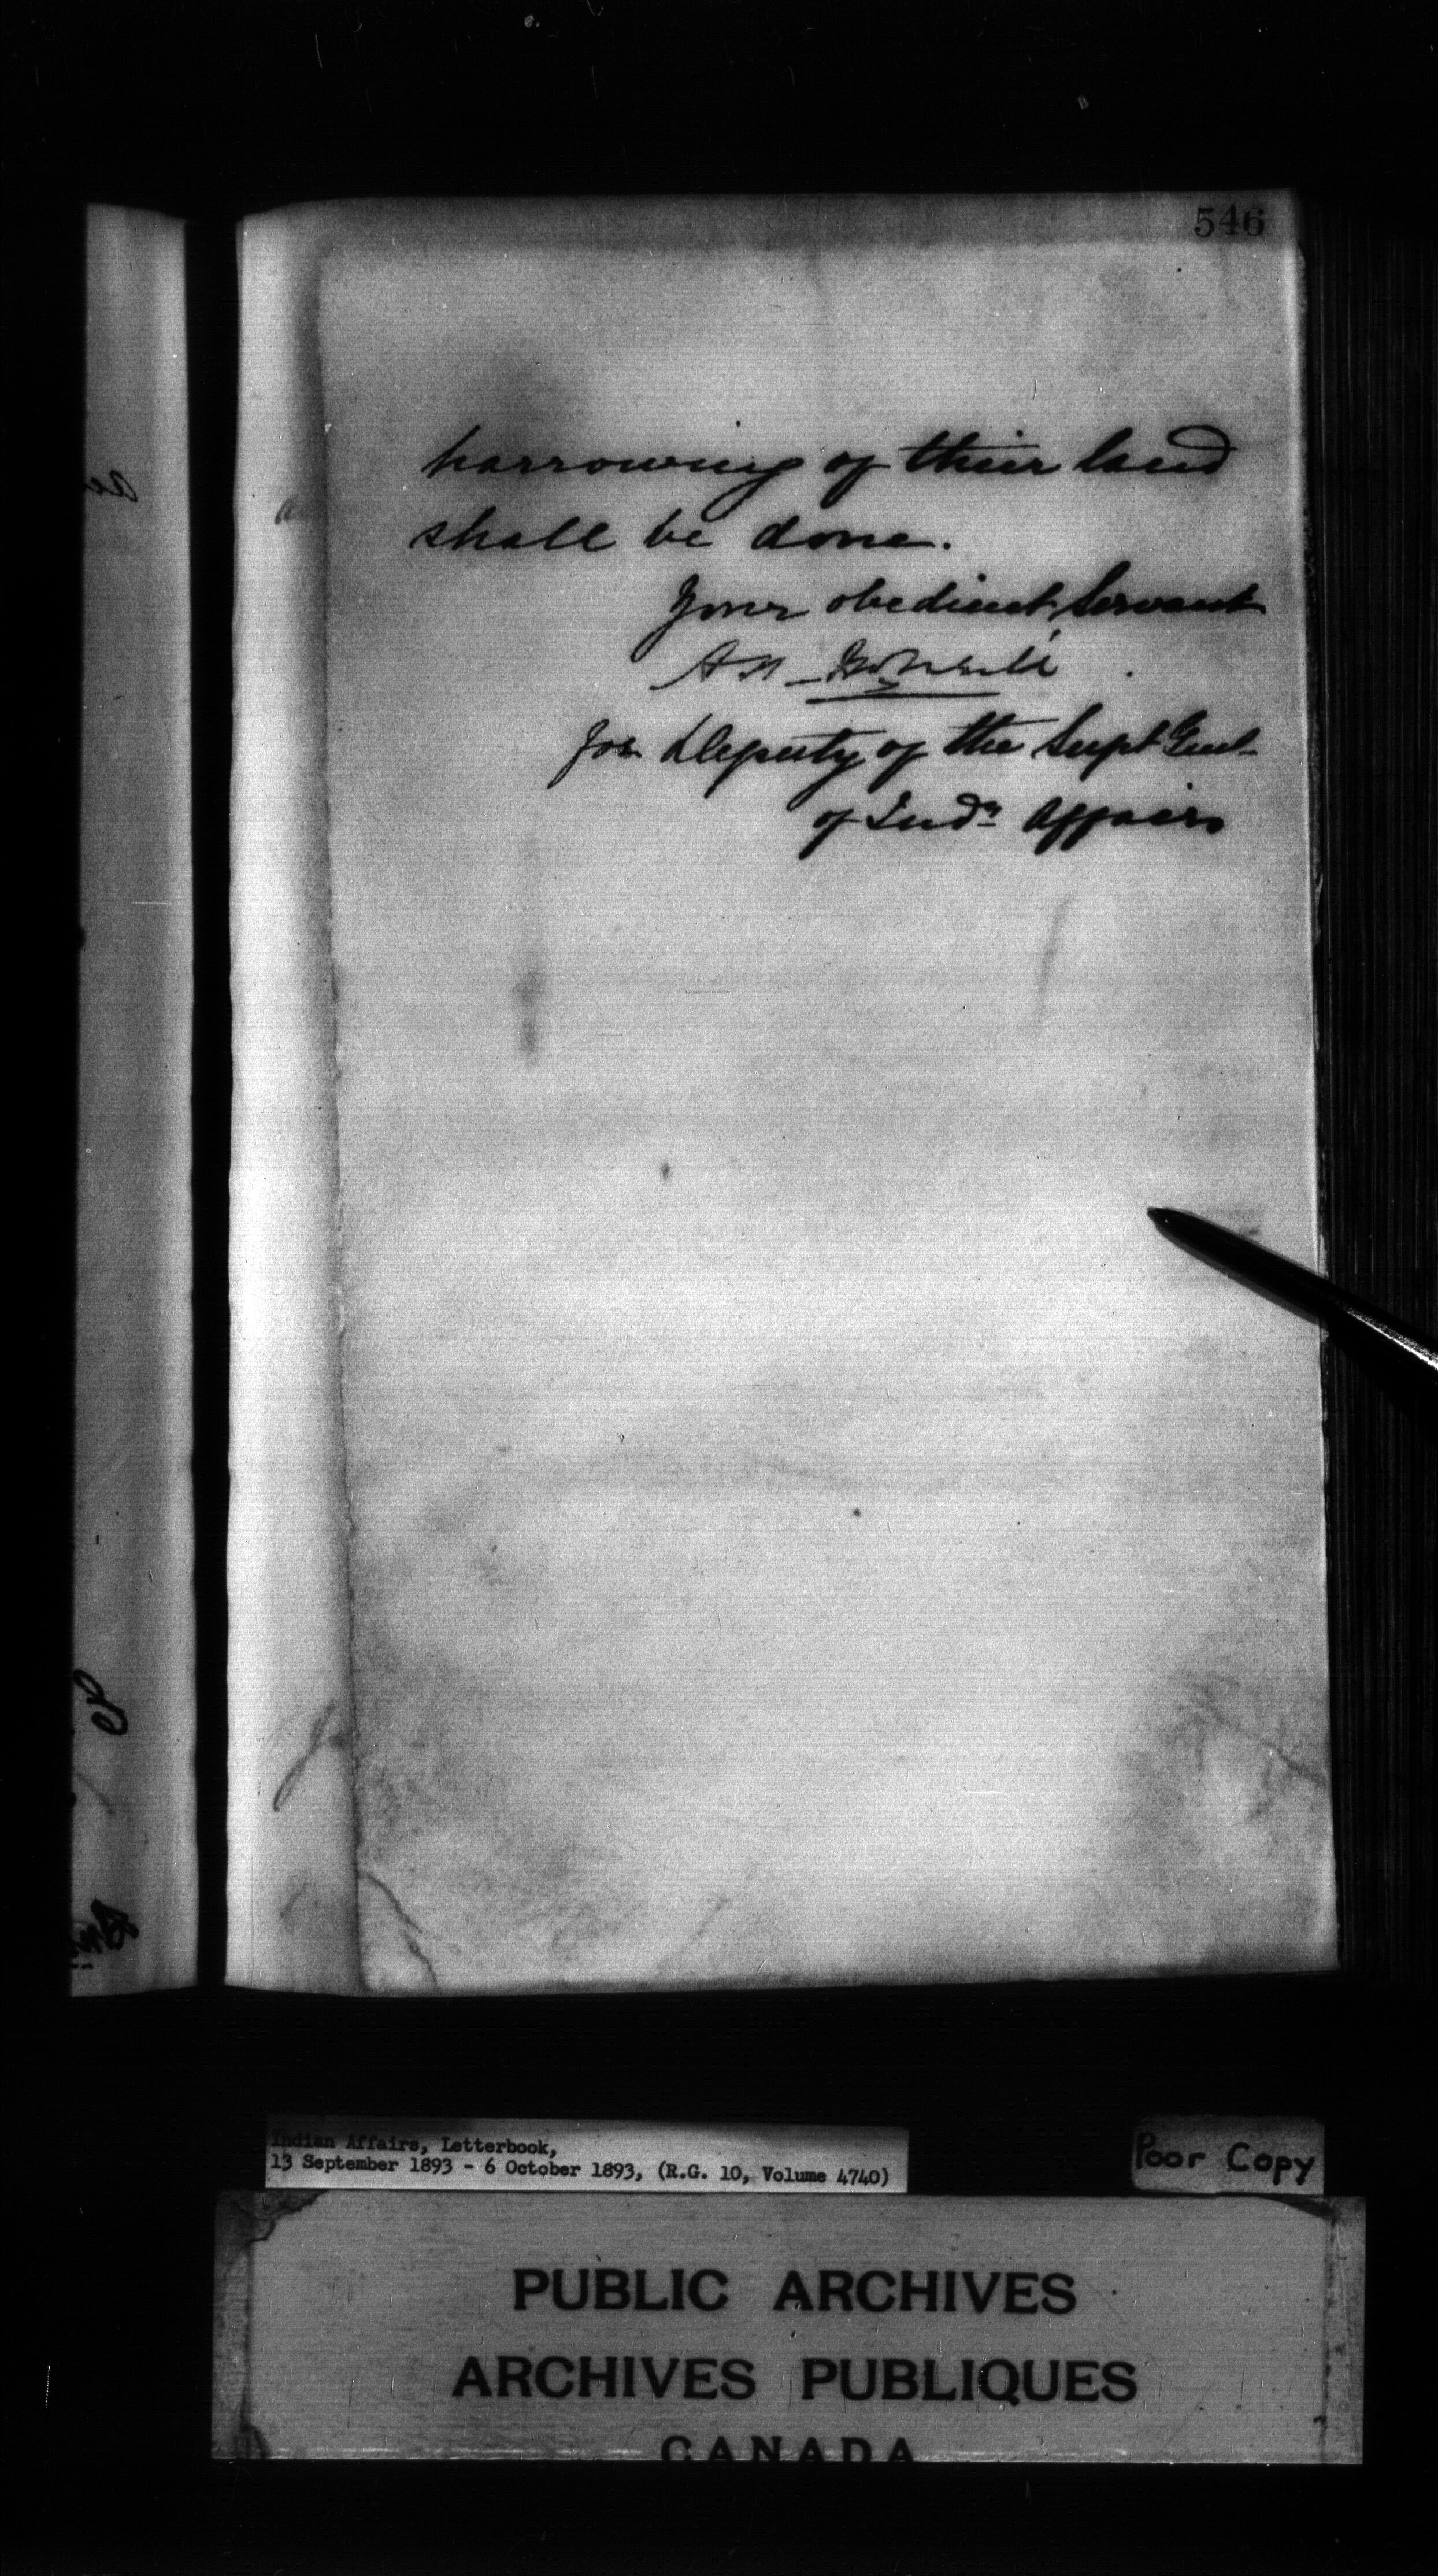 546
harrowing of their land
shall be done.
Your obedient Servant
A N
for Deputy of the Supt Genl
of Indn Affairs
Indian Affairs, Letterbook,
13 September 1893 - 6 October 1893, (R.G. 10, Volume 4740)
Poor Copy
PUBLIC ARCHIVES
ARCHIVES PUBLIQUES
CANADA